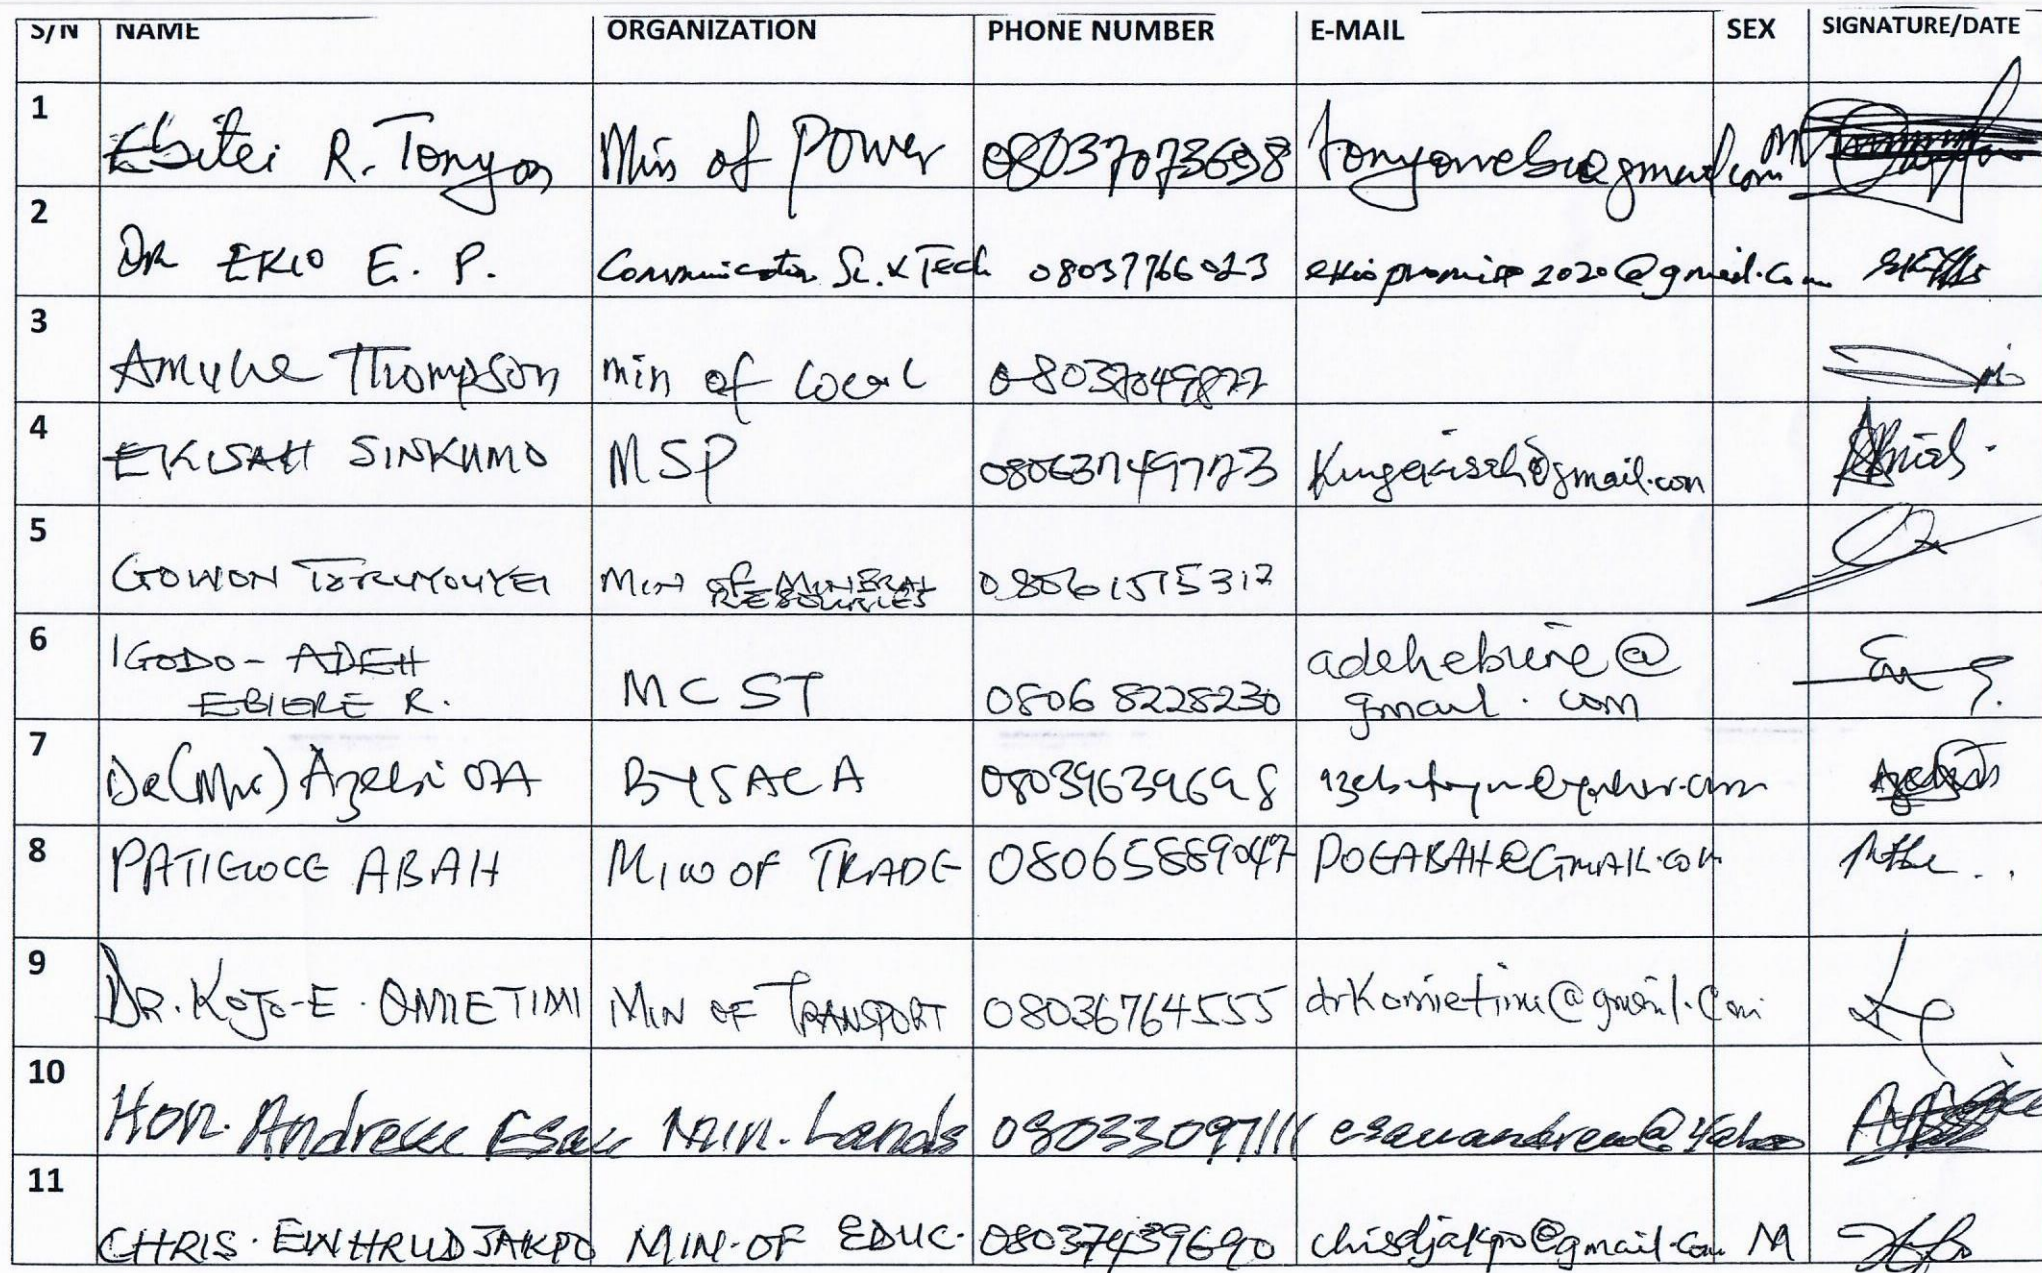 S/N NAME ORGANIZATION PHONE NUMBER E-MAIL SEX SIGNATURE/DATE
1 Ebitei R. Min of Power 08037073698 M
2 DR EKIO E. P. Communication Sc. & Tech 08037766023 ekiopromise2020@gmail.com
3 Thompson min of Local
4 EKISAH SINKUMO MSP
5 GOWON TORUYOUYEI MIN OF MINERAL
RESOURCES
6 IGODO- ADEH
EBIERE R. MCST 08068228230 adehebiere@
gmail.com
7 Dr(Mrs) Azebi BYSACA
8 ABAH MIN OF TRADE 08065889047 POEABAH@GMAIL.COM
9 DR. KOJO-E. OMIETIMI MIN OF TRANSPORT 08036764555 drkomietimi@gmail.com
10 Hon. Andrew Esau Min. Lands 08033097111 esauandrew@Yahoo
11 CHRIS. EWHRUDJAKPO MIN. OF EDUC. 08037439690 chisdjakpo@gmail.com M